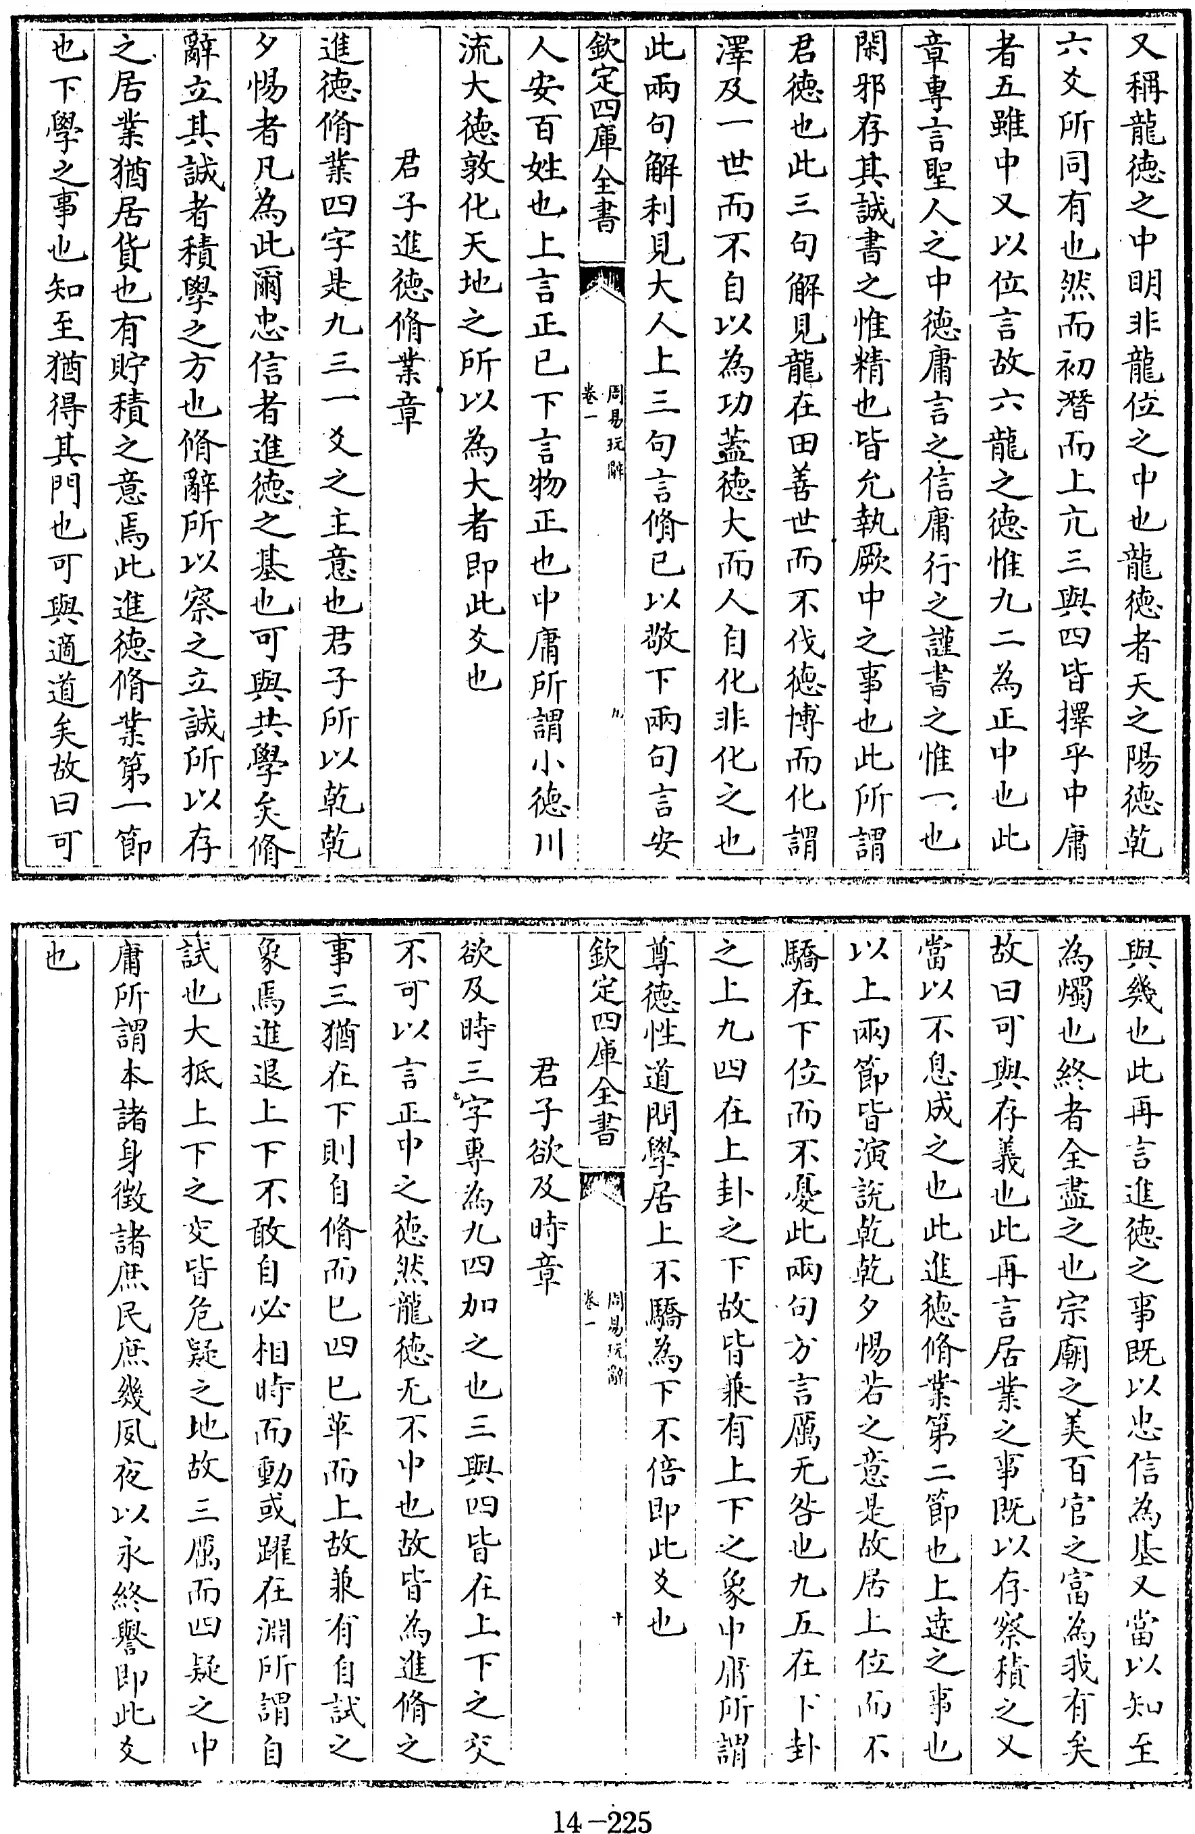 又稱龍德之中明非龍位之中也龍德者天之陽德乾
六爻所同有也然而初潛而上亢三與四皆擇乎中庸
者五雖中又以位言故六龍之德惟九二為正中也此
章專言聖人之中德庸言之信庸行之謹書之惟一也
閑邪存其誠書之惟精也皆允執厥中之事也此所謂
君德也此三句解見龍在田善世而不伐德博而化謂
澤及一世而不自以為功蓋德大而人自化非化之也
此兩句解利見大人上三句言脩已以敬下兩句言安
欽定四庫全書
周易玩辭
卷一
九
人安百姓也上言正已下言物正也中庸所謂小德川
流大德敦化天地之所以為大者即此爻也
君子進德脩業章
進德脩業四字是九三一爻之主意也君子所以乾乾
夕惕者凡為此爾忠信者進德之基也可與共學矣脩
辭立其誠者積學之方也脩辭所以察之立誠所以存
之居業猶居貨也有貯積之意焉此進德脩業第一節
也下學之事也知至猶得其門也可與適道矣故曰可
與幾也此再言進德之事既以忠信為基又當以知至
為燭也終者全盡之也宗廟之美百官之富為我有矣
故曰可與存義也此再言居業之事既以存察積之又
當以不息成之也此進德脩業第二節也上達之事也
以上兩節皆演說乾乾夕惕若之意是故居上位而不
驕在下位而不憂此兩句方言厲无咎也九五在下卦
之上九四在上卦之下故皆兼有上下之象中庸所謂
尊德性道問學居上不驕為下不倍即此爻也
欽定四庫全書
周易玩辭
卷一
十
君子欲及時章
欲及時三字專為九四加之也三與四皆在上下之交
不可以言正中之德然龍德无不中也故皆為進脩之
事三猶在下則自脩而已四已革而上故兼有自試之
象焉進退上下不敢自必相時而動或躍在淵所謂自
試也大抵上下之交皆危疑之地故三厲而四疑之中
庸所謂本諸身徵諸庶民庶幾夙夜以永終譽即此爻
也
14-225